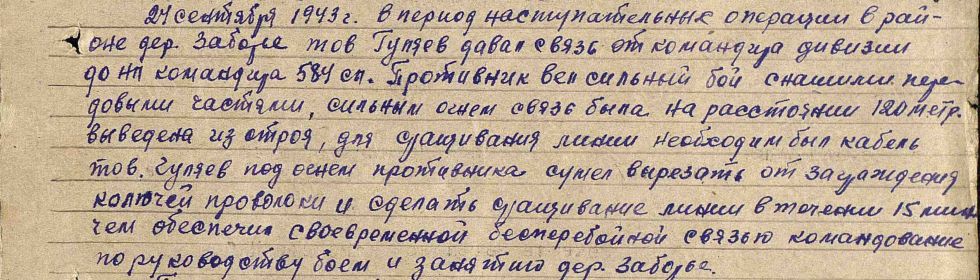 24 сентября 1943 г. в период наступательных операции в рай-
оне дер. Заборе тов Гуляев давал связь от командира дивизии
до нп командира 584 сп. Противник вел сильный бой с нашими пере-
довыми частями, сильным огнем связь была на расстоянии 120 метр.
выведена из строя, для сращивания линии необходим был кабель
тов. Гуляев под огнем противника сумел вырезать от заграждения
колючей проволоки и сделать сращивание линии в течении 15 мин
чем обеспечил своевременной бесперебойной связью командование
по руководству боем и занятию дер. Заборье.